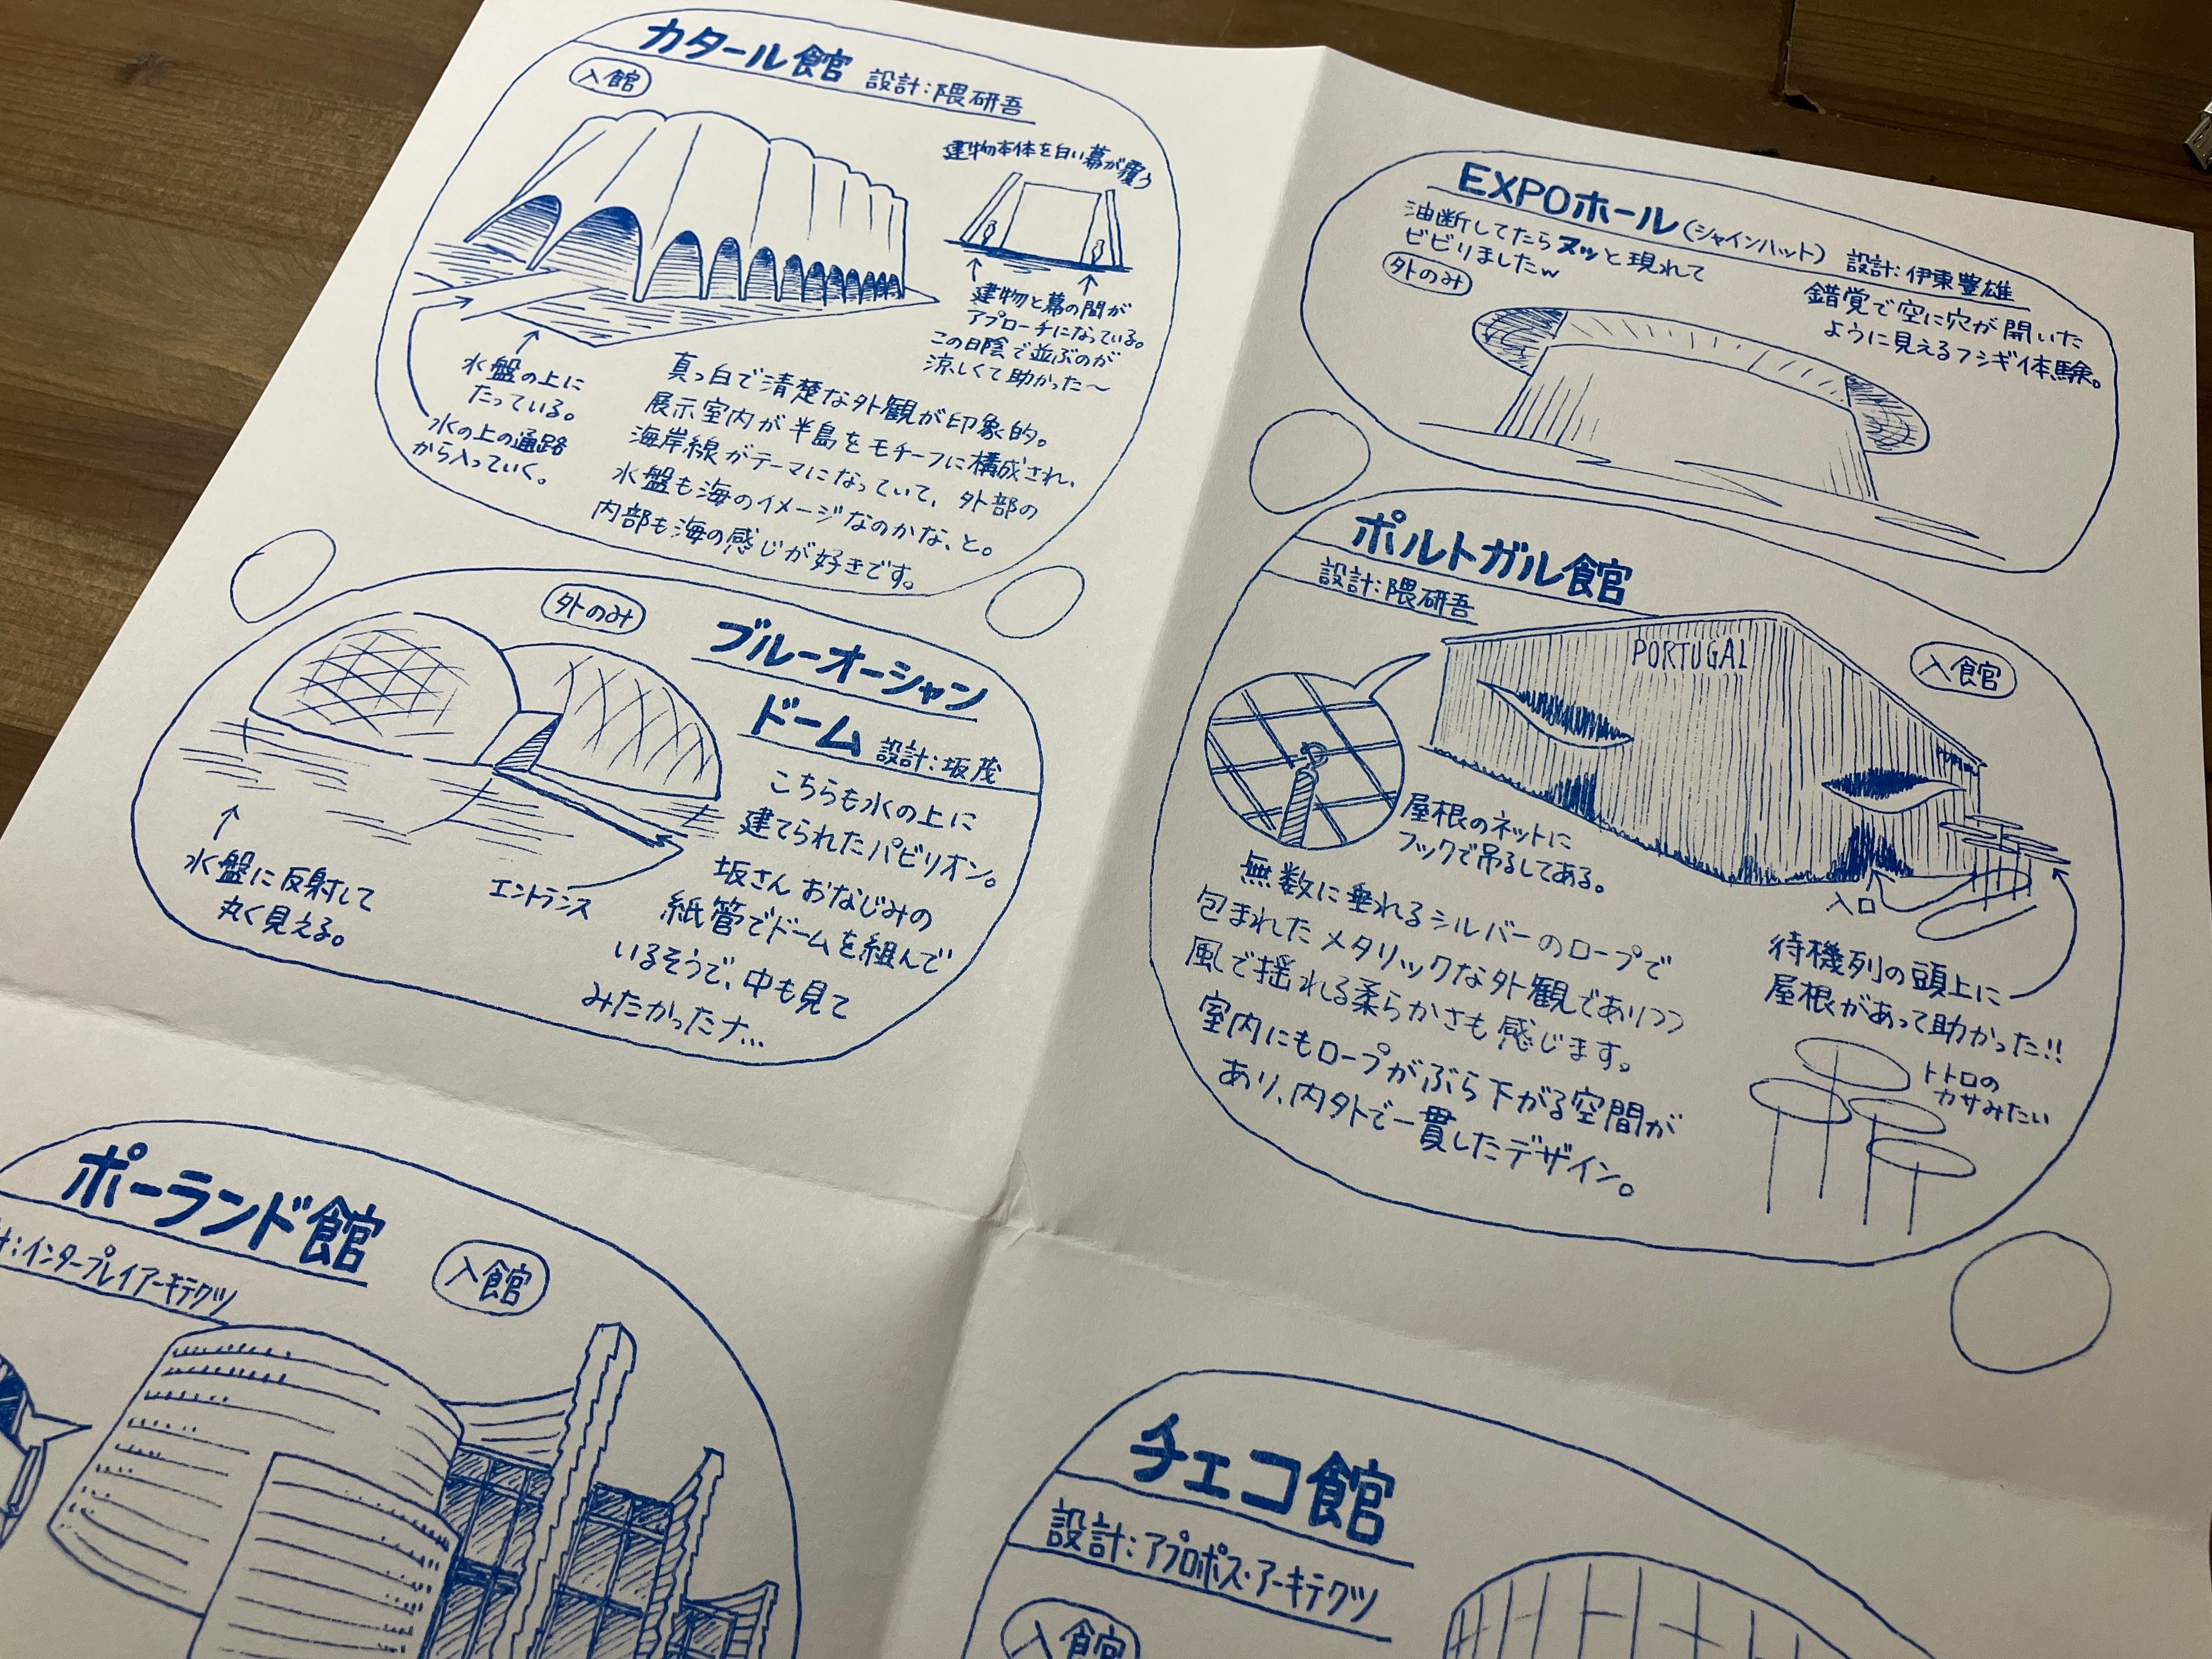 カタール館 設計：隈研吾
入館
建物本体を白い幕が覆う
建物と幕の間が
アプローチになっている。
この日陰で並ぶのが
涼しくて助かった〜
水盤の上に
たっている。
水の上の通路
から入っていく。
真っ白で清楚な外観が印象的。
展示室内が半島をモチーフに構成され、
海岸線がテーマになっていて、外部の
水盤も海のイメージなのかな、と。
内部も海の感じが好きです。
外のみ
ブルーオーシャン
ドーム 設計：坂茂
こちらも水の上に
建てられたパビリオン。
坂さんおなじみの
紙管でドームを組んで
いるそうで、中も見て
みたかったナ…
水盤に反射して
丸く見える。
エントランス
EXPOホール（シャインハット） 設計：伊東豊雄
油断してたらヌッと現れて
ビビりましたw
外のみ
錯覚で空に穴が開いた
ように見えるフシギ体験。
ポルトガル館
設計：隈研吾
入館
PORTUGAL
屋根のネットに
フックで吊るしてある。
入口
無数に垂れるシルバーのロープで
包まれたメタリックな外観でありつつ
風で揺れる柔らかさも感じます。
室内にもロープがぶら下がる空間が
あり、内外で一貫したデザイン。
待機列の頭上に
屋根があって助かった!!
トトロの
カサみたい
ポーランド館
計：インタープレイアーキテクツ
入館
チェコ館
設計：アプロポス・アーキテクツ
入館